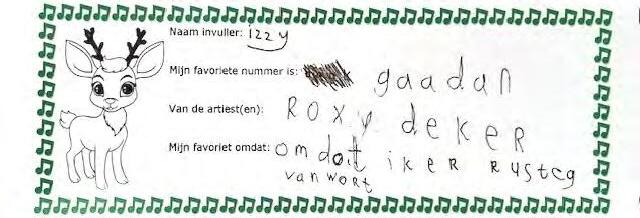 Naam invuller: izzy
Mijn favoriete nummer is: gaadan
Van de artiest(en): ROXY deKER
Mijn favoriet omdat: omdat iker Rusteg
van wort